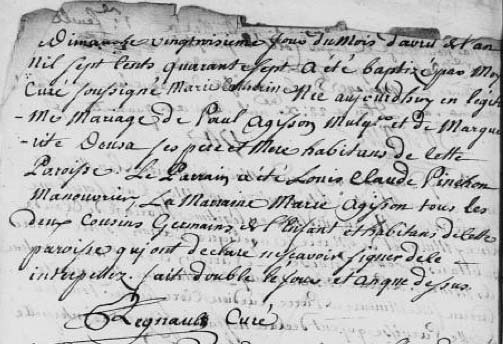 Dimanche vingtroisieme jour du Mois d'avril de l'an
Mil sept Cents quarante sept a été baptizé par Moy
Curé soussigné Marie Née aujourdhuy en légiti
-me Mariage de Paul Agisson et de Margue
-rite Deusa ses pere et Mere habitans de Cette
Paroisse. Le Parrain a été Louis Claude Pinchon
Manouvrier La Marraine Marie Agisson tous les
deux Cousins Germains de l'Enfant et habitans de Cette
paroisse qui ont declaré ne scavoir signer de ce
interpellez. fait double les jours et an que dessus.
Regnault Curé